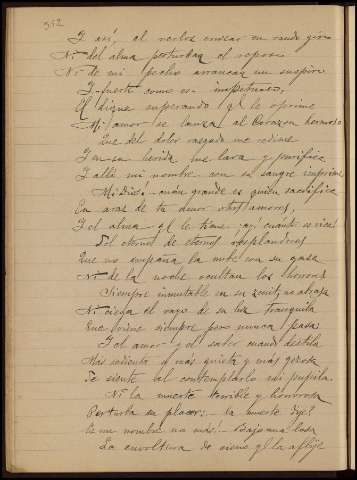 352
Y así, al verlos cruzar en raudo giro
Ni del alma perturban el reposo
Ni de mi pecho arrancan un suspiro
Y fuerte como es impetuoso,
El dique superando q! le oprime
Mi amor se lanza al Corazon hermoso
Que del dolor rasgado me redime
Y en su herida me lava y purifica
Y allí mi nombre con su sangre imprime
Mi Dios! cuán grande es quien sacrifica
En aras de tu amor otros amores,
Y el alma q! le tiene
Sol eterno de eternos resplandores
Que no empaña la nube con su gasa
Ni de la noche ocultan los horrores
Siempre inmutable en su zenit, no abrasa
Ni ciega el rayo de su luz tranquila
Que sigue siempre pero nunca pasa
Y el amor y el saber cuando destila
Más sedienta á más quieta y más gozosa
Se siente al contemplarlo mi pupila.
Ni la muerte terrible y horrorosa
Perturba su placer: la muerte dije?
Es un nombre no más! Bajo una losa
La envoltura de cieno q! la aflije